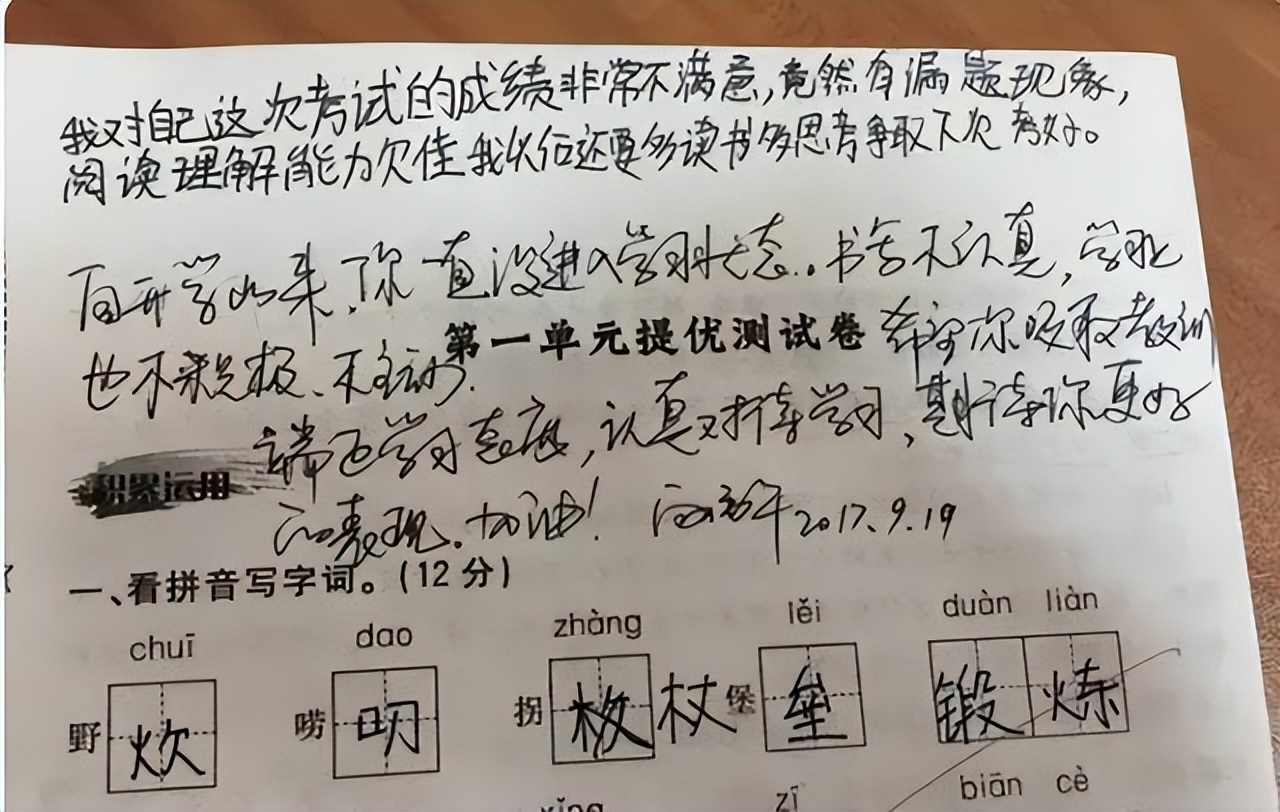 我对自己这次考试的成绩非常不满意,竟然有漏题现象,
阅读理解能力欠佳我以后还要多读书多思考争取下次考好。
自开学以来,你一直没进入学习状态。书写不认真,学习
也不积极、不主动。
第一单元提优测试卷
希望你吸取教训
端正学习态度,认真对待学习,期待你更好
的表现。加油! 2017.9.19
积累运用
一、看拼音写字词。(12分)
chuī dao zhàng lěi duàn liàn
野炊 唠叨 拐杖 堡垒 锻炼
xíng zī biān cè